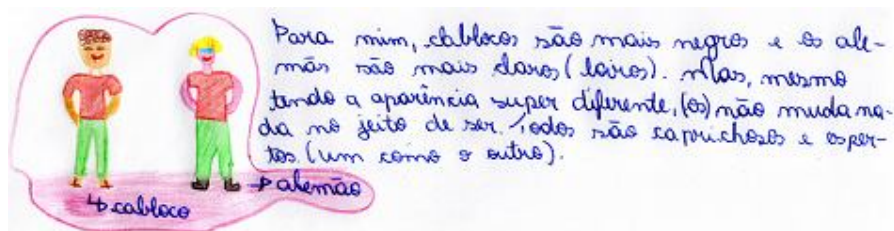 Para mim, cablocos são mais negros e os ale-
mãs são mais claros (loiros). Mas, mesmo
tendo a aparência super diferente, (os) não muda na-
da no jeito de ser. Todos são caprichosos e esper-
tos (um como o outro).
↳ cabloco
↳ alemão